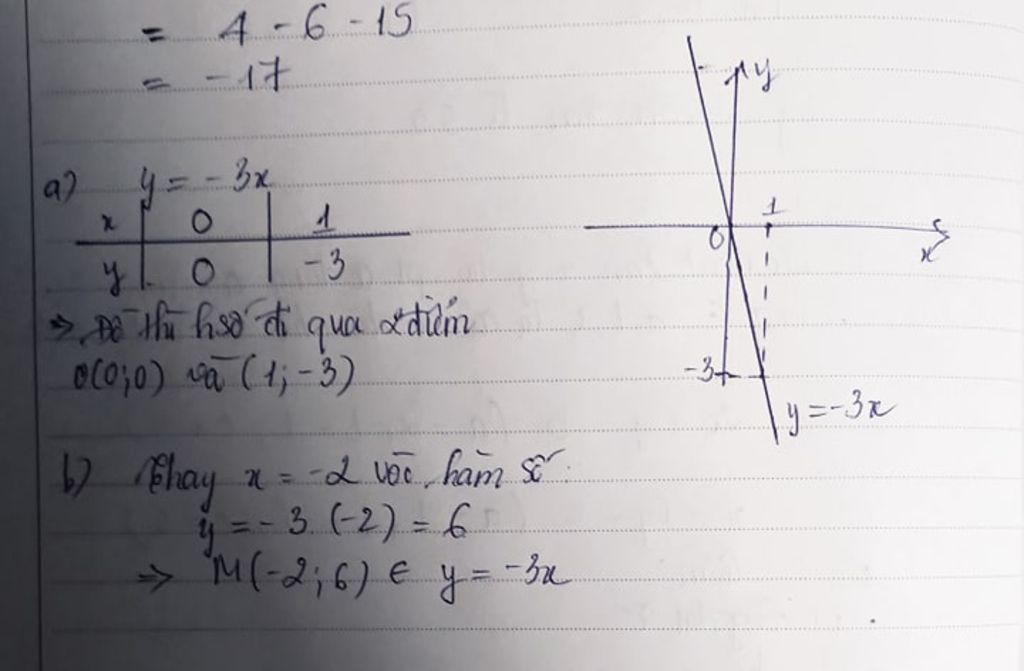 = 4 - 6 - 15
= -17
a) y = -3x
x | 0 | 1
y | 0 | -3
=> Đồ thị h.số đi qua 2 điểm
O(0;0) và (1; -3)
b) Thay x = -2 vào hàm số:
y = -3.(-2) = 6
=> M(-2; 6) ∈ y = -3x
y
1
0
x
-3
y = -3x